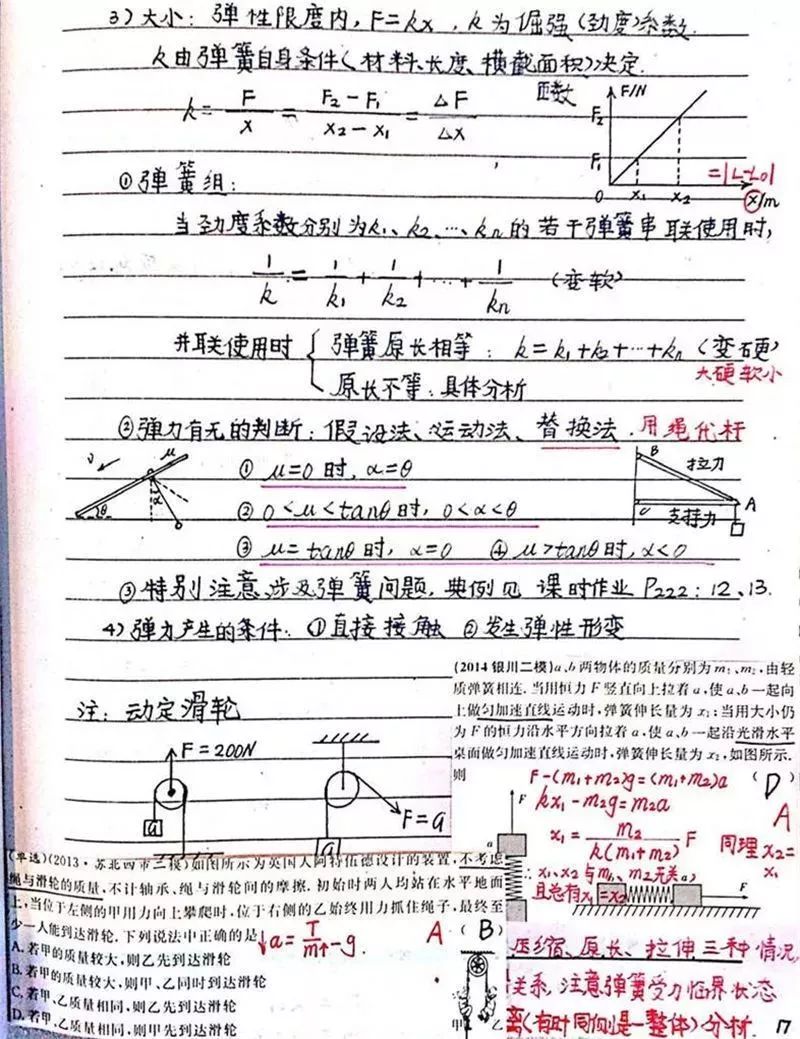 3)大小：弹性限度内，F=kx，k为倔强(劲度)系数.
k由弹簧自身条件(材料、长度、横截面积)决定.
k = F/x = (F₂-F₁)/(x₂-x₁) = ΔF/Δx
F/N
F₂
F₁
0 x₁ x₂ x/m
=|L-L₀|
①弹簧组：
当劲度系数分别为k₁、k₂、…、kₙ的若干弹簧串联使用时，
1/k = 1/k₁ + 1/k₂ + … + 1/kₙ (变软)
并联使用时 { 弹簧原长相等：k=k₁+k₂+…+kₙ (变硬)
大硬软小
原长不等：具体分析
②弹力有无的判断：假设法、运动法、替换法.用绳代杆
v μ α θ
① μ=0时，α=θ
② 0<μ<tanθ时，0<α<θ
③ μ=tanθ时，α=0 ④ μ>tanθ时，α<0
B 拉力 A
C 支持力
③特别注意涉及弹簧问题，典例见 课时作业 P222：12、13.
4)弹力产生的条件：①直接接触 ②发生弹性形变
注：动定滑轮
F=200N
a
F=a
a
(2014银川二模)a、b两物体的质量分别为m₁、m₂，由轻
质弹簧相连.当用恒力F竖直向上拉着a，使a、b一起向
上做匀加速直线运动时，弹簧伸长量为x₁；当用大小仍
为F的恒力沿水平方向拉着a，使a、b一起沿光滑水平
桌面做匀加速直线运动时，弹簧伸长量为x₂，如图所示.
则 ( D )
F-(m₁+m₂)g=(m₁+m₂)a
kx₁-m₂g=m₂a
A
x₁= m₂/k(m₁+m₂) F 同理x₂=x₁
∴x₁、x₂与m₁、m₂无关
且总有x₁=x₂
F
a
F
(单选)(2013·苏北四市三模)如图所示为英国人阿特伍德设计的装置，不考虑
绳与滑轮的质量，不计轴承、绳与滑轮间的摩擦.初始时两人均站在水平地面
上，当位于左侧的甲用力向上攀爬时，位于右侧的乙始终用力抓住绳子，最终至
少一人能到达滑轮.下列说法中正确的是 ↓a=T/m↑-g. A ( B )
A.若甲的质量较大，则乙先到达滑轮
B.若甲的质量较大，则甲、乙同时到达滑轮
C.若甲、乙质量相同，则乙先到达滑轮
D.若甲、乙质量相同，则甲先到达滑轮
甲 乙
压缩、原长、拉伸三种情况
关系，注意弹簧受力临界状态
离(有时同侧是一整体)分析.
17